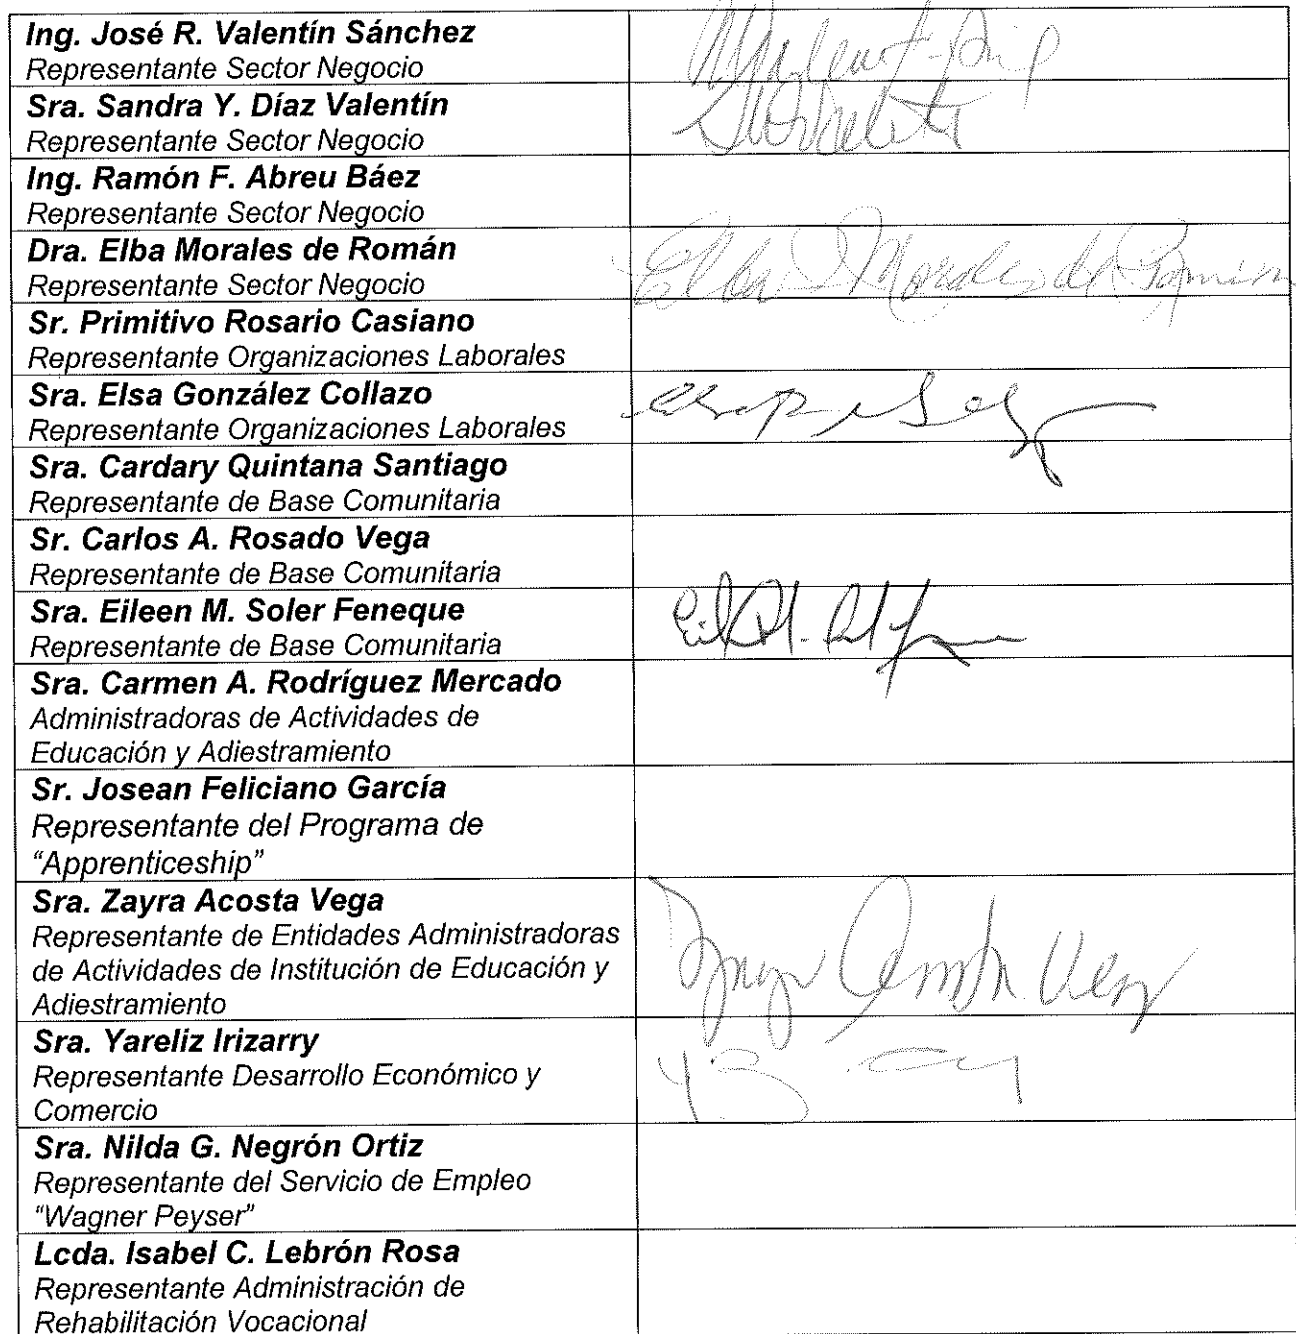 Ing. José R. Valentín Sánchez
Representante Sector Negocio
Sra. Sandra Y. Díaz Valentín
Representante Sector Negocio
Ing. Ramón F. Abreu Báez
Representante Sector Negocio
Dra. Elba Morales de Román
Representante Sector Negocio
Elba I Morales de Román
Sr. Primitivo Rosario Casiano
Representante Organizaciones Laborales
Sra. Elsa González Collazo
Representante Organizaciones Laborales
Sra. Cardary Quintana Santiago
Representante de Base Comunitaria
Sr. Carlos A. Rosado Vega
Representante de Base Comunitaria
Sra. Eileen M. Soler Feneque
Representante de Base Comunitaria
Sra. Carmen A. Rodríguez Mercado
Administradoras de Actividades de
Educación y Adiestramiento
Sr. Josean Feliciano García
Representante del Programa de
“Apprenticeship”
Sra. Zayra Acosta Vega
Representante de Entidades Administradoras
de Actividades de Institución de Educación y
Adiestramiento
Zayra Acosta Vega
Sra. Yareliz Irizarry
Representante Desarrollo Económico y
Comercio
Sra. Nilda G. Negrón Ortiz
Representante del Servicio de Empleo
“Wagner Peyser”
Lcda. Isabel C. Lebrón Rosa
Representante Administración de
Rehabilitación Vocacional